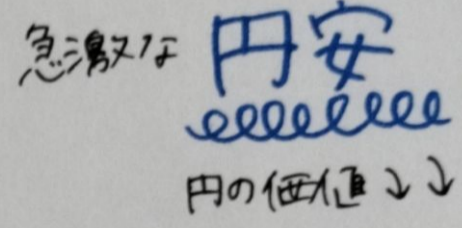 急激な 円安
円の価値↓↓